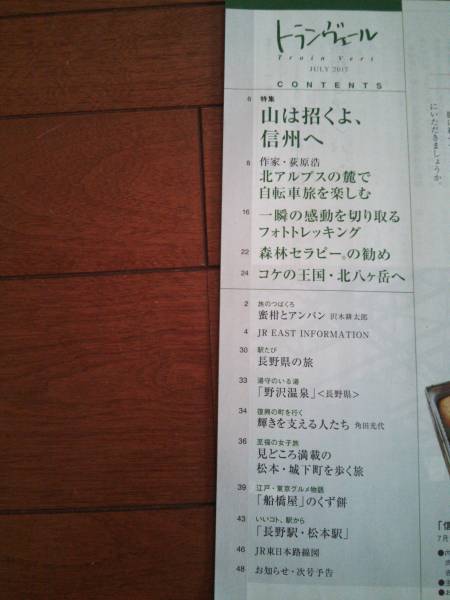 トランヴェール
Train Vert
JULY 2017
CONTENTS
6 特集
山は招くよ、
信州へ
8 作家・荻原浩
北アルプスの麓で
自転車旅を楽しむ
16 一瞬の感動を切り取る
フォトトレッキング
22 森林セラピー®の勧め
24 コケの王国・北八ヶ岳へ
2 旅のつばくろ
蜜柑とアンパン 沢木耕太郎
4 JR EAST INFORMATION
30 駅たび
長野県の旅
33 湯守のいる湯
「野沢温泉」<長野県>
34 復興の町を行く
輝きを支える人たち 角田光代
36 至福の女子旅
見どころ満載の
松本・城下町を歩く旅
39 江戸・東京グルメ物語
「船橋屋」のくず餅
43 いいコト、駅から
「長野駅・松本駅」
46 JR東日本路線図
48 お知らせ・次号予告
にいただきましょうか。
7月